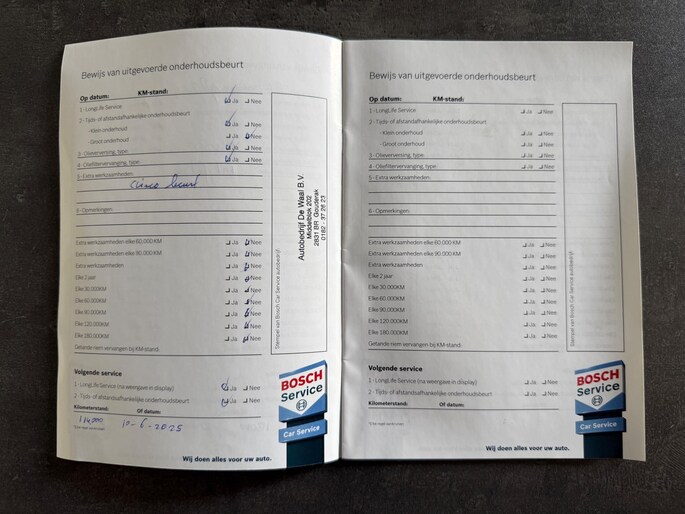 Bewijs van uitgevoerde onderhoudsbeurt
Op datum: KM-stand:
1 - LongLife Service Ja Nee
2 - Tijds- of afstandafhankelijke onderhoudsbeurt Ja Nee
- Klein onderhoud Ja Nee
- Groot onderhoud Ja Nee
3 - Olieverversing, type: Ja Nee
4 - Oliefiltervervanging, type: Ja Nee
5 - Extra werkzaamheden:
beurt
6 - Opmerkingen:
Extra werkzaamheden elke 60.000 KM Ja Nee
Extra werkzaamheden elke 90.000 KM Ja Nee
Extra werkzaamheden Ja Nee
Elke 2 jaar Ja Nee
Elke 30.000KM Ja Nee
Elke 60.000KM Ja Nee
Elke 90.000KM Ja Nee
Elke 120.000KM Ja Nee
Elke 180.000KM Ja Nee
Getande riem vervangen bij KM-stand:
Autobedrijf De Waal B.V.
Middelblok 202
2831 BR Gouderak
0182 - 37 26 23
Stempel van Bosch Car Service autobedrijf
Volgende service
1 - LongLife Service (na weergave in display) Ja Nee
2 - Tijds- of afstandafhankelijke onderhoudsbeurt Ja Nee
Kilometerstand: Of datum:
114000 10-6-2025
BOSCH
Service
Car Service
Wij doen alles voor uw auto.
Bewijs van uitgevoerde onderhoudsbeurt
Op datum: KM-stand:
1 - LongLife Service Ja Nee
2 - Tijds- of afstandafhankelijke onderhoudsbeurt
- Klein onderhoud Ja Nee
- Groot onderhoud Ja Nee
3 - Olieverversing, type: Ja Nee
4 - Oliefiltervervanging, type: Ja Nee
5 - Extra werkzaamheden:
6 - Opmerkingen:
Extra werkzaamheden elke 60.000 KM Ja Nee
Extra werkzaamheden elke 90.000 KM Ja Nee
Extra werkzaamheden Ja Nee
Elke 2 jaar Ja Nee
Elke 30.000KM Ja Nee
Elke 60.000KM Ja Nee
Elke 90.000KM Ja Nee
Elke 120.000KM Ja Nee
Elke 180.000KM Ja Nee
Getande riem vervangen bij KM-stand:
Stempel van Bosch Car Service autobedrijf
Volgende service
1 - LongLife Service (na weergave in display) Ja Nee
2 - Tijds- of afstandafhankelijke onderhoudsbeurt Ja Nee
Kilometerstand: Of datum:
BOSCH
Service
Car Service
Wij doen alles voor uw auto.